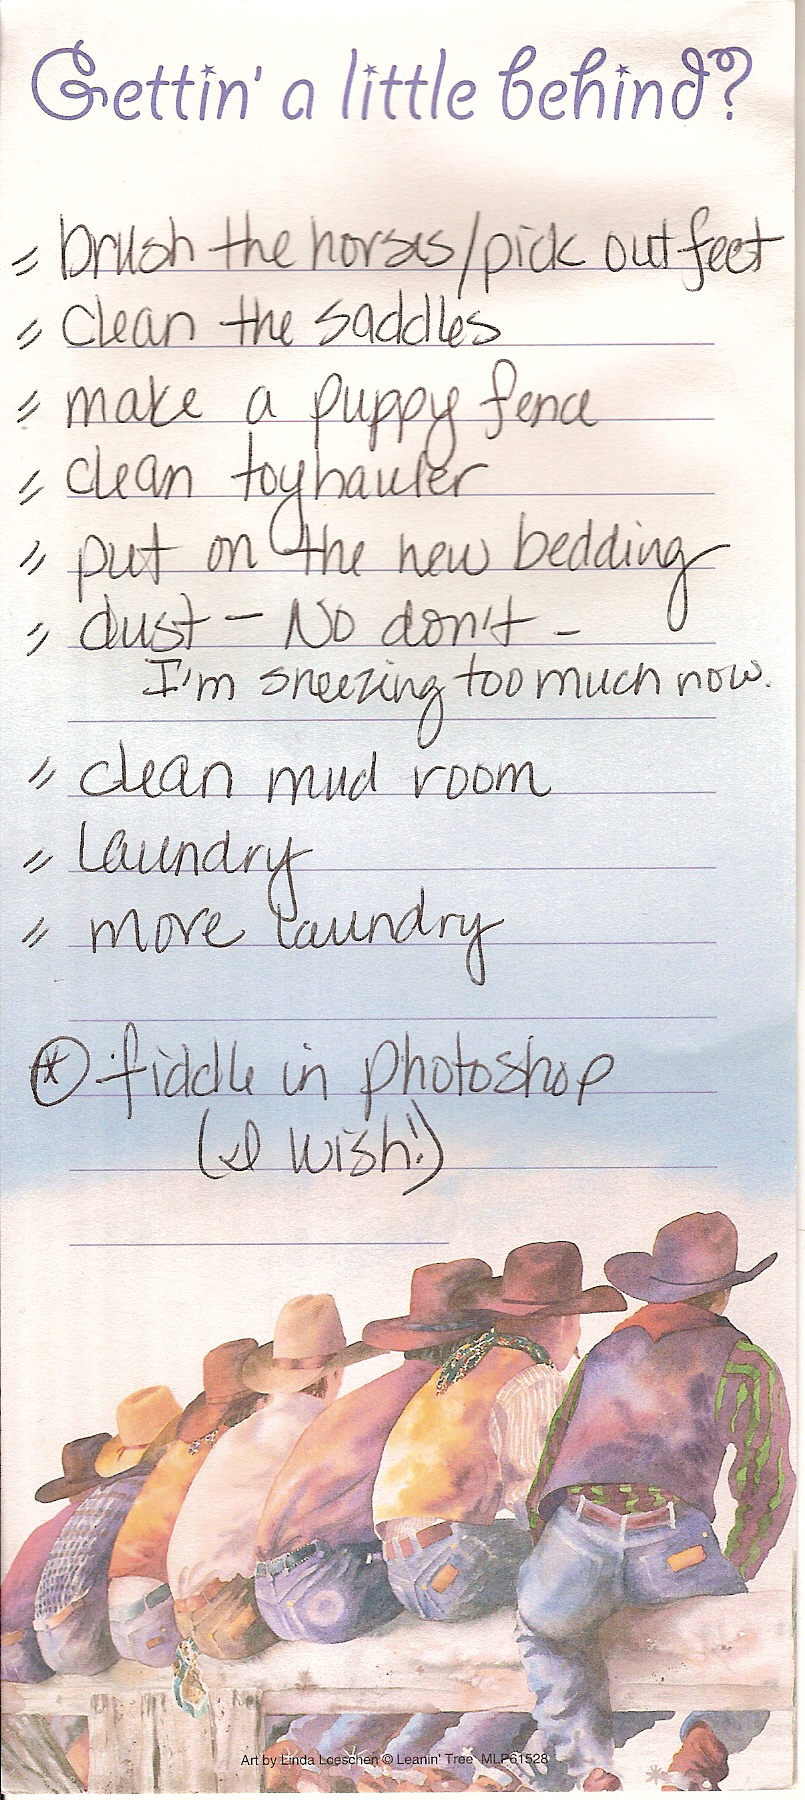 Gettin' a little behind?
= brush the horses/pick out feet
= clean the saddles
= make a puppy fence
= clean toyhauler
= put on the new bedding
= dust - No don't -
I'm sneezing too much now.
= clean mud room
= Laundry
= more laundry
* fiddle in photoshop
(I wish!)
Art by Linda Loeschen © Leanin' Tree MLP61528